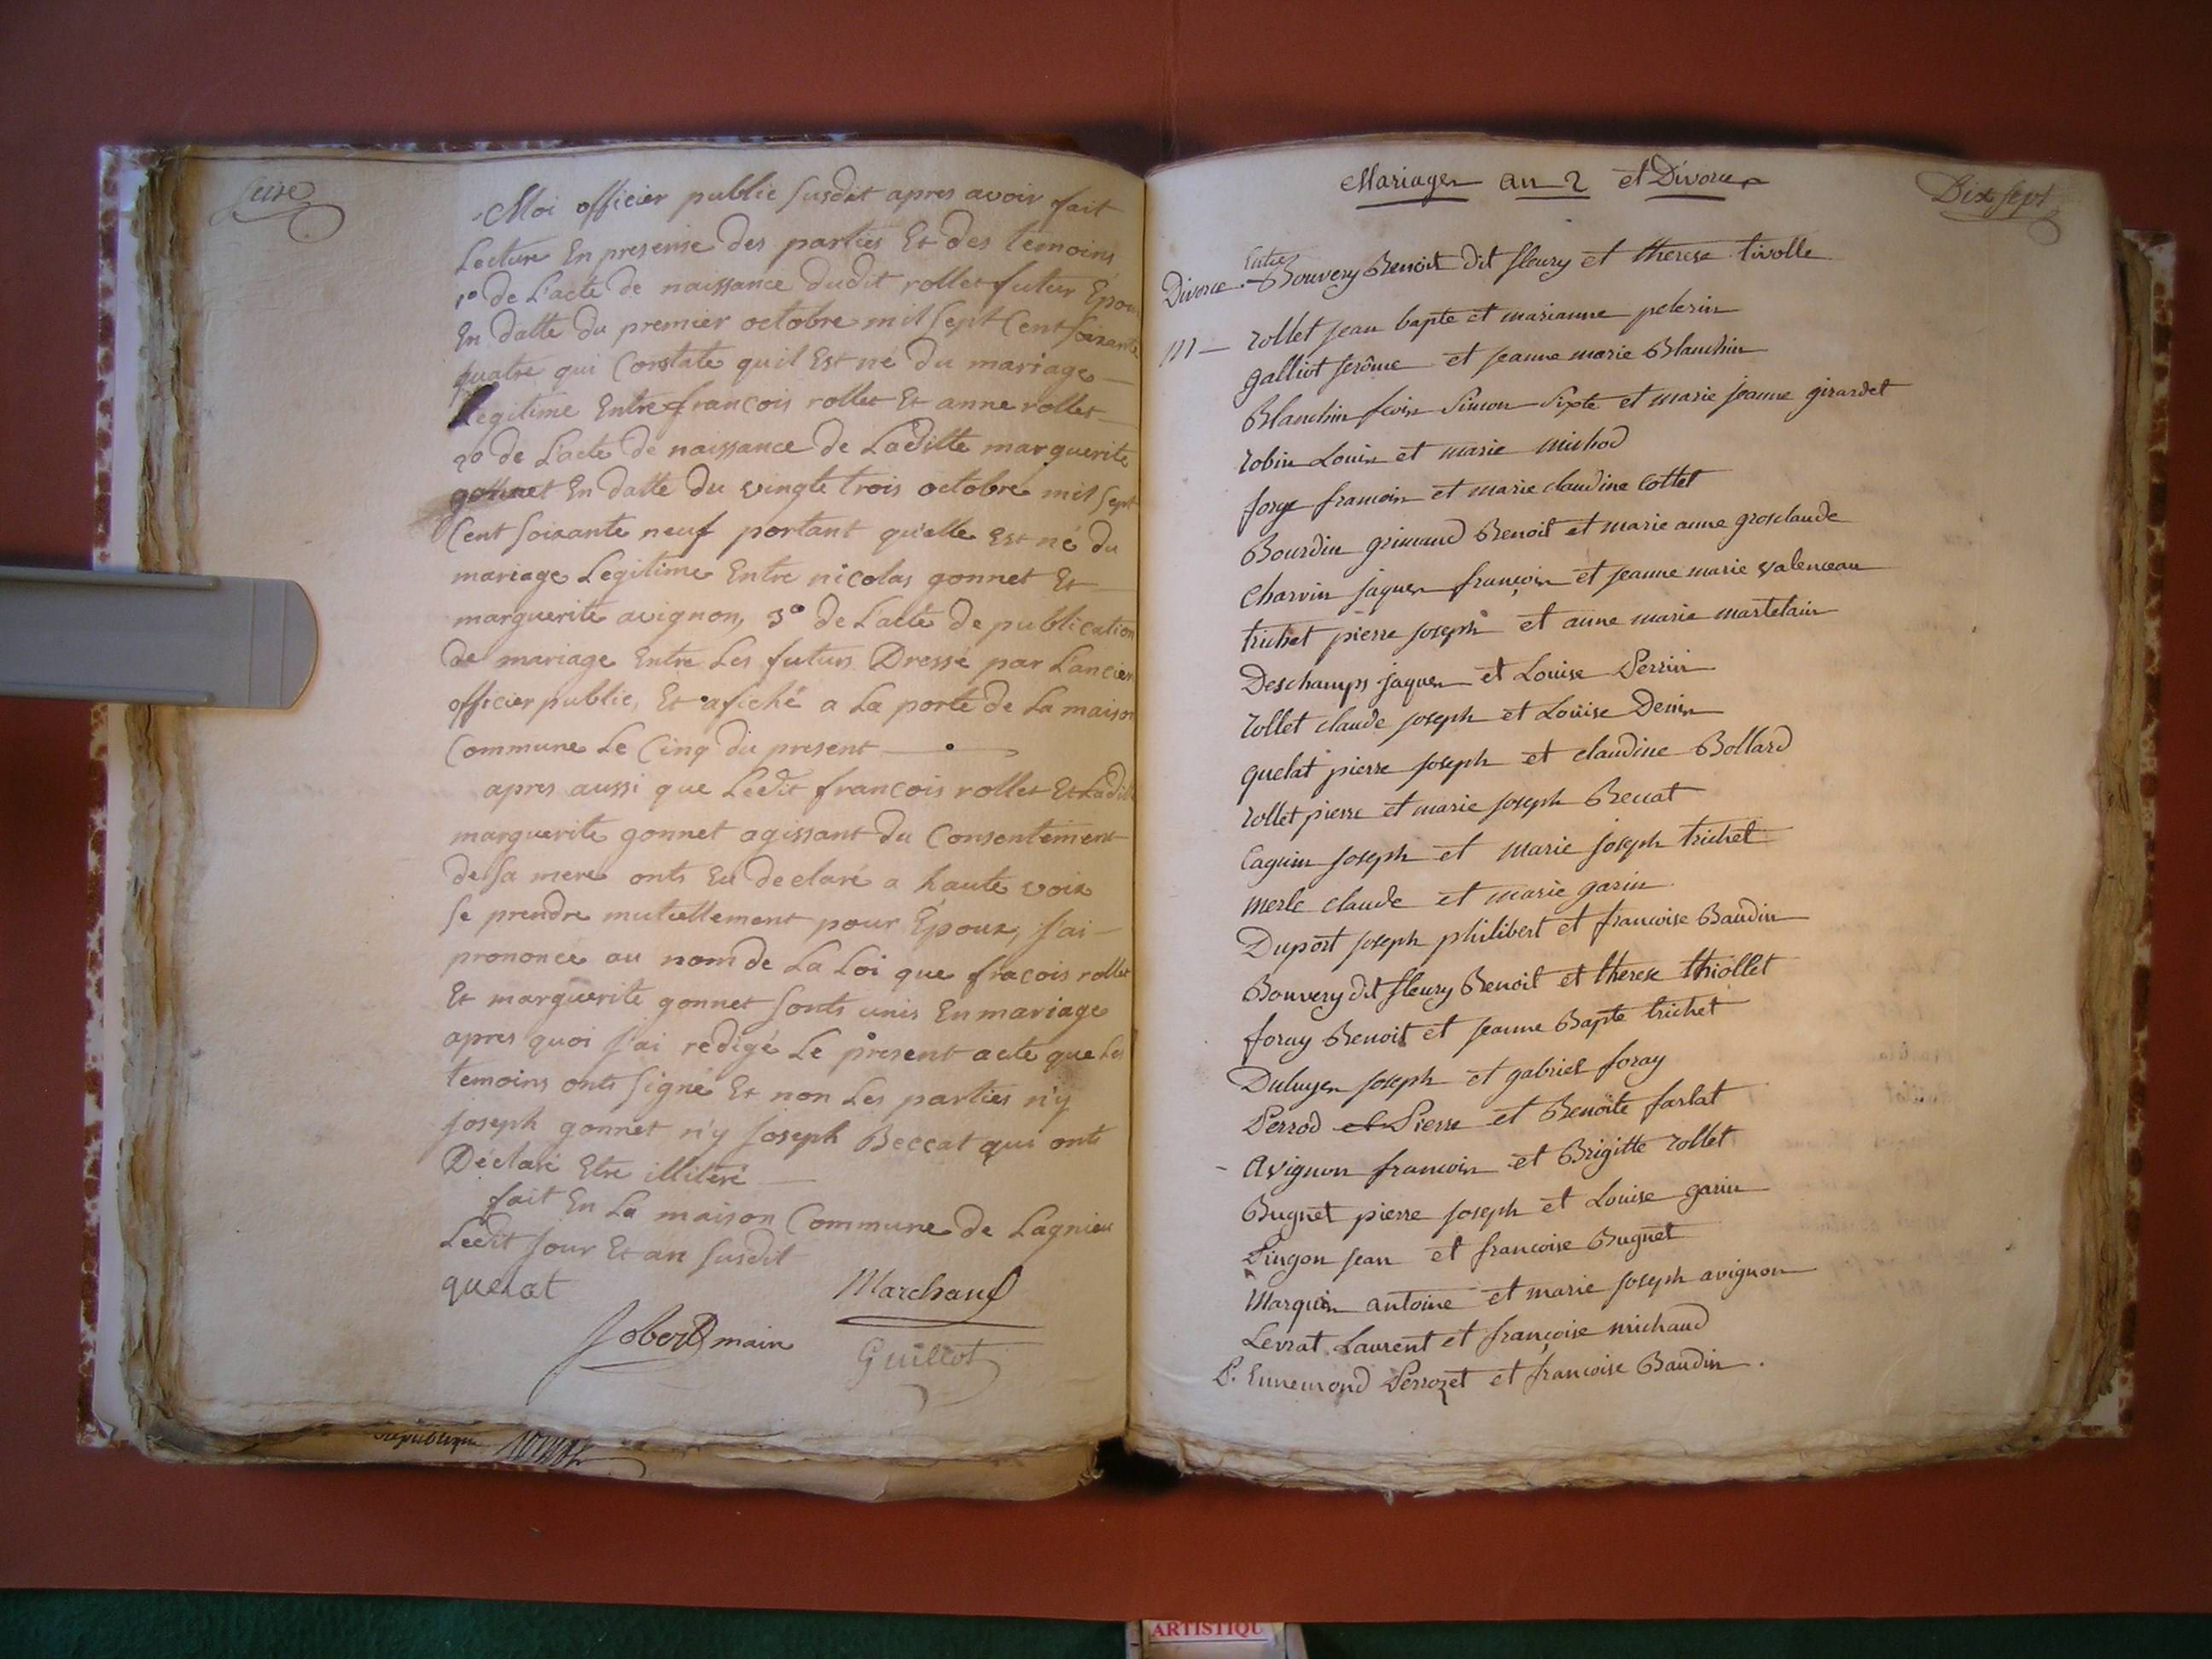 Seize
Moi officier public susdit apres avoir fait
Lecture En presense des parties Et des temoins
1º de L'acte de naissance dudit rollet futur Epoux
En datte du premier octobre mil sept Cent soixante
quatre qui Constate quil Est né du mariage
Legitime Entre francois rollet Et anne rollet
2º de L'acte de naissance de Laditte marguerite
gonnet En datte du vingte trois octobre mil sept
Cent soixante neuf portant qu'elle Est né du
mariage Legitime Entre nicolas gonnet Et
marguerite avignon, 3º de L'acte de publication
de mariage Entre Les futurs Dressé par L'ancien
officier public, Et afiché a La porte de La maison
Commune Le Cinq du present
apres aussi que Ledit francois rollet Et Ladit
marguerite gonnet agissant du Consentement
de sa mere onts Eu declaré a haute voix
se prendre mutuellement pour Epoux, j'ai
prononcé au nom de La Loi que fracois rollet
Et marguerite gonnet sonts unis En mariage
apres quoi j'ai redigé Le present acte que Les
temoins onts signé Et non Les parties n'y
joseph gonnet n'y joseph Beccat qui onts
Déclaré Etre illiteré
fait En La maison Commune de Lagnieu
Ledit jour Et an susdit
quelat Marchand
Jobert main
Guillot
republique
Mariages an 2 et Divorces
Dix sept
Entre
Divorce. Bouvery Benoit dit fleury et therese tivolle
M— rollet jean bapte et marianne pelerin
galliot jerôme et jeanne marie Blanchin
Blanchin fcois Simon Sixte et marie jeanne girardet
robin Louis et marie michod
forge francois et marie claudine Cottet
Bourdin grimaud Benoit et marie anne grosclaude
Charvin jaques françois et jeanne marie valenceau
trichet pierre joseph et anne marie martelain
Deschamps jaques et Louise Perrin
rollet claude joseph et Loüise Denis
quelat pierre joseph et claudine Bollard
rollet pierre et marie joseph Beccat
Caguin joseph et marie joseph trichet
merle claude et marie garin
Duport joseph philibert et francoise Baudin
Bouvery dit fleury Benoit et therese thiollet
foray Benoit et jeanne Bapte trichet
Duluyes joseph et gabriel foray
Perrod et Pierre et Benoite farlat
avignon francois et Brigitte rollet
Bugnet pierre joseph et Louise garin
Pingon jean et francoise Bugnet
Marquis antoine et marie joseph avignon
Levrat Laurent et françoise michaud
P. Ennemond Perrozet et francoise Baudin.
ARTISTIQU